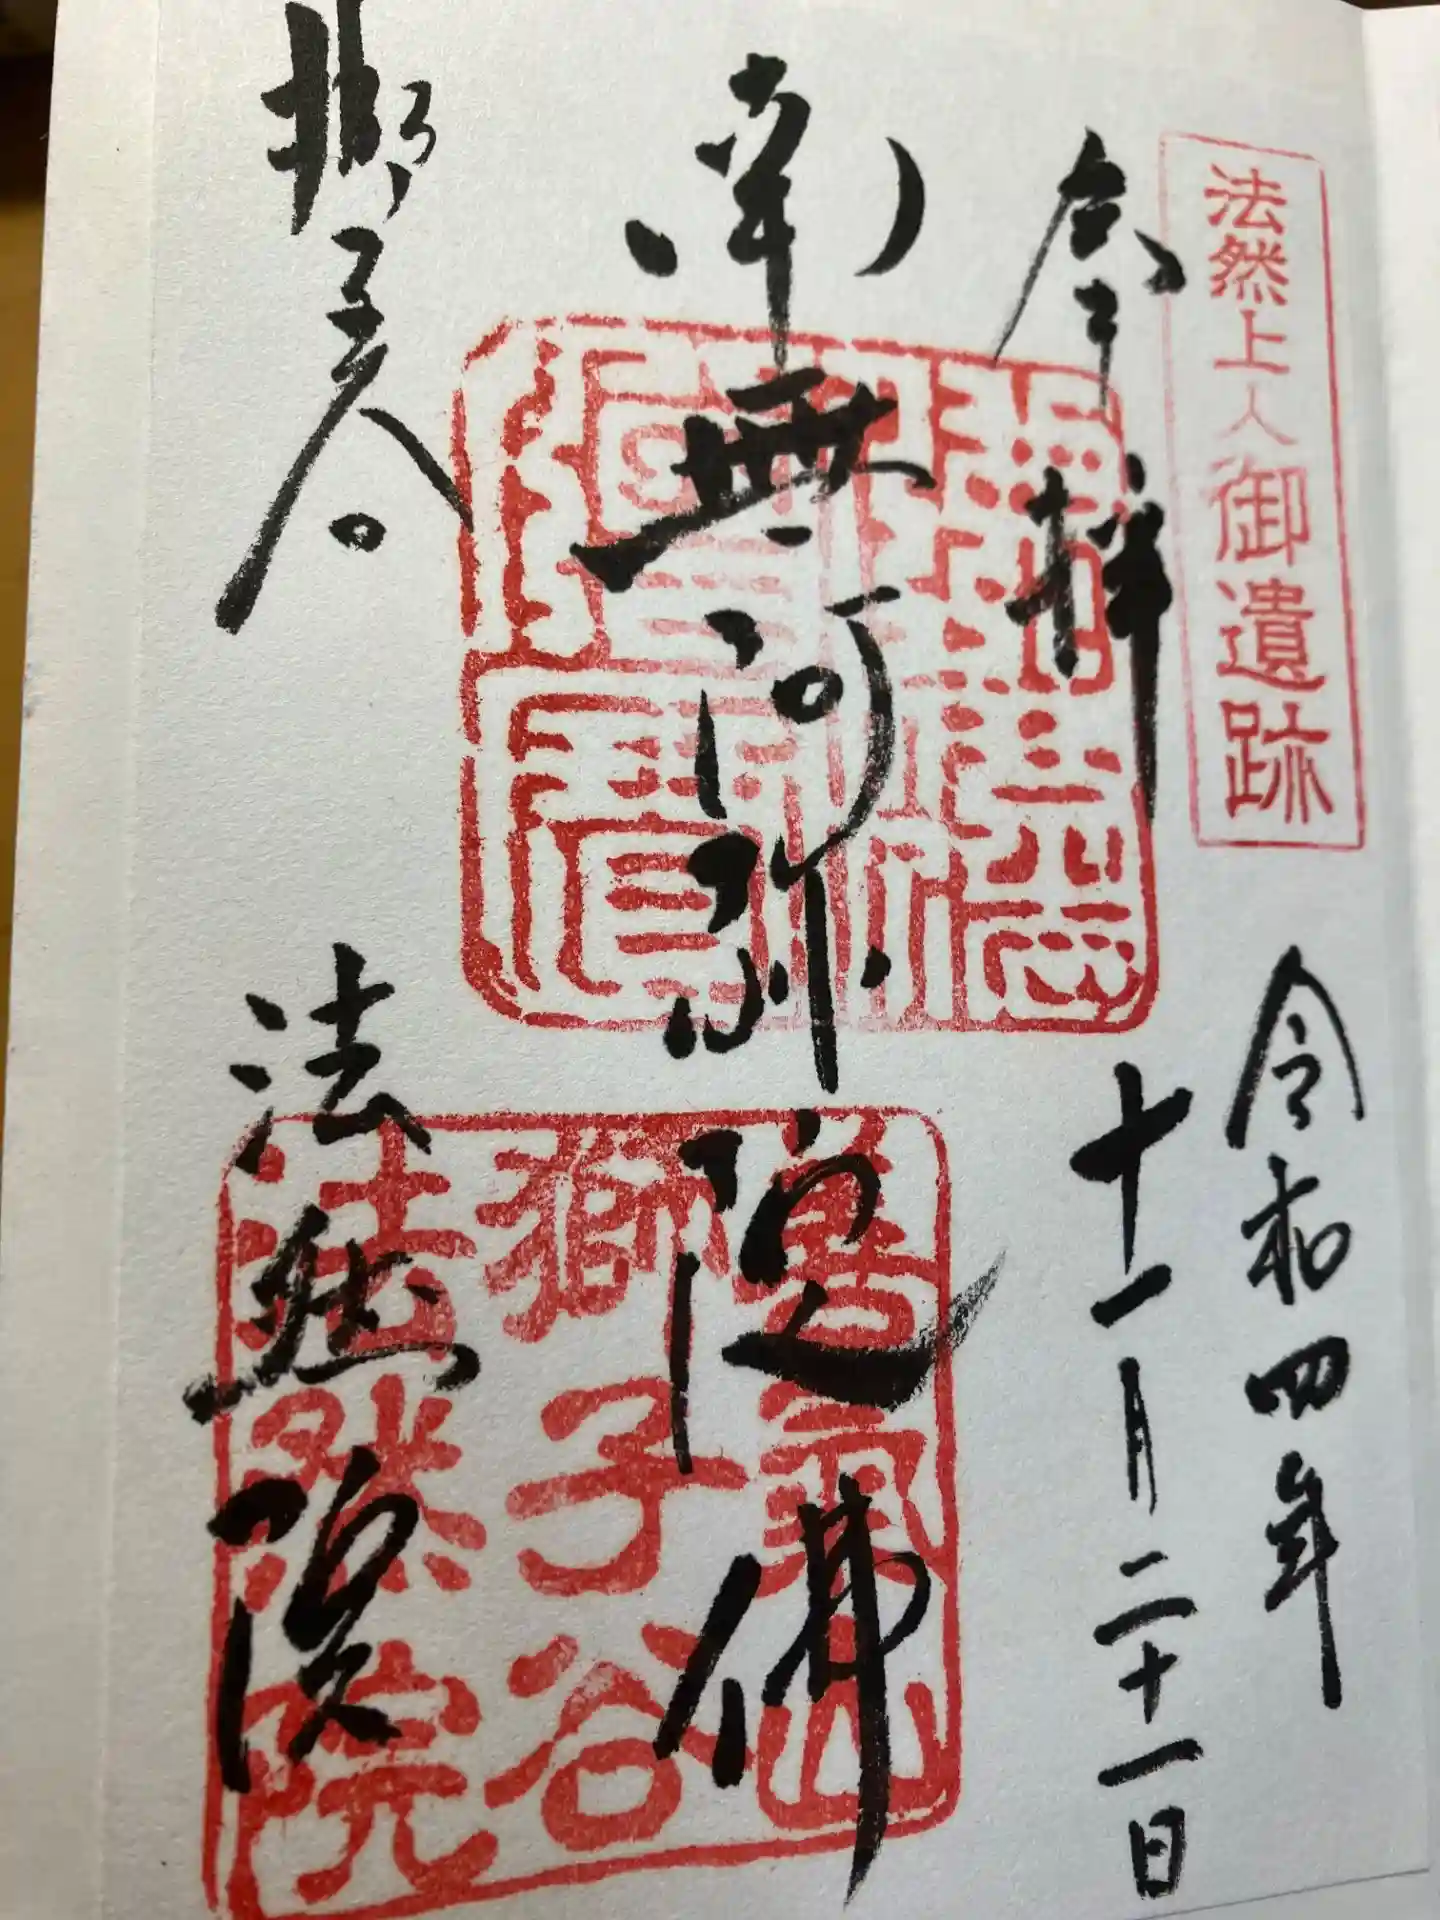 法然上人御遺跡
奉拝
令和四年
十一月二十一日
南無阿弥陀佛
獅子谷
法然院
善氣山
獅子谷
法然院